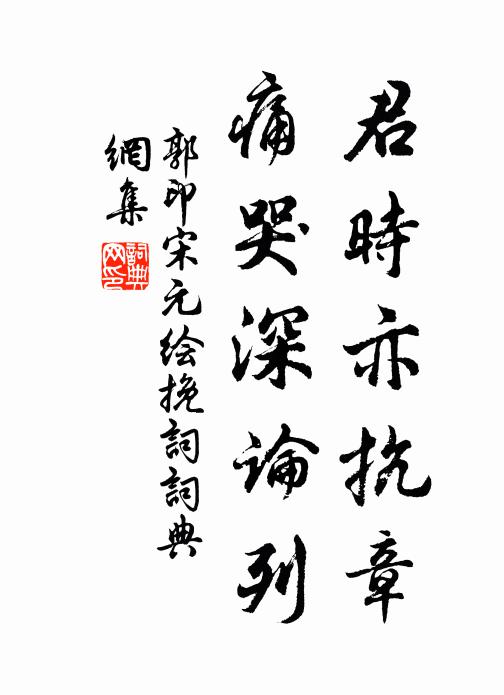 君時亦抗章
痛哭深論列
郭印宋元絵挽詞詞典
網集
詞典網印